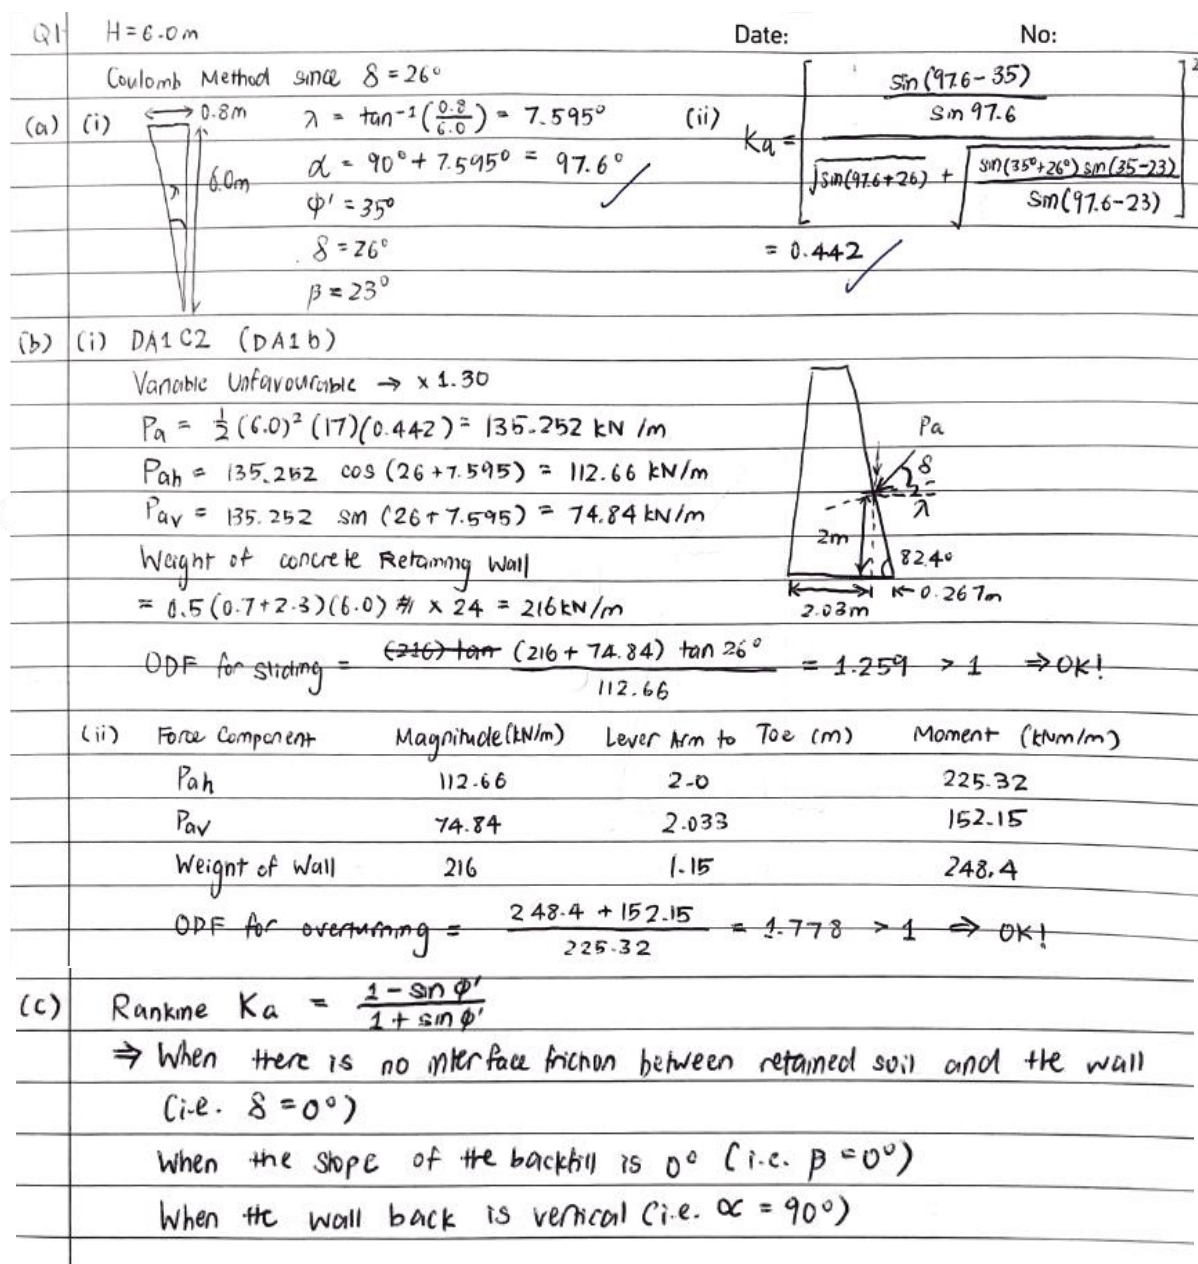 Q1 H = 6.0m Date: No:
Coulomb Method since δ = 26°
(a) (i) 0.8m λ = tan-1(0.8/6.0) = 7.595° (ii) Ka = [ (sin(97.6-35) / sin 97.6) / (√sin(97.6+26) + √(sin(35°+26°) sin(35-23) / sin(97.6-23))) ]²
λ 6.0m α = 90° + 7.595° = 97.6°
φ' = 35°
δ = 26° = 0.442
β = 23°
(b) (i) DA1C2 (DA1b)
Variable Unfavourable → × 1.30
Pa = 1/2 (6.0)² (17)(0.442) = 135.252 kN/m
Pah = 135.252 cos (26+7.595) = 112.66 kN/m
Pav = 135.252 sin (26+7.595) = 74.84 kN/m
Pa
δ
λ
2m
82.4°
2.03m 0.267m
Weight of concrete Retaining Wall
= 0.5(0.7+2.3)(6.0) × 24 = 216kN/m
ODF for sliding = (216) tan (216 + 74.84) tan 26° / 112.66 = 1.259 > 1 ⇒ OK!
(ii) Force Component Magnitude (kN/m) Lever Arm to Toe (m) Moment (kNm/m)
Pah 112.66 2.0 225.32
Pav 74.84 2.033 152.15
Weight of Wall 216 1.15 248.4
ODF for overturning = 248.4 + 152.15 / 225.32 = 1.778 > 1 ⇒ OK!
(c) Rankine Ka = 1 - sin φ' / 1 + sin φ'
⇒ When there is no interface friction between retained soil and the wall
(i.e. δ = 0°)
When the slope of the backfill is 0° (i.e. β = 0°)
When the wall back is vertical (i.e. α = 90°)